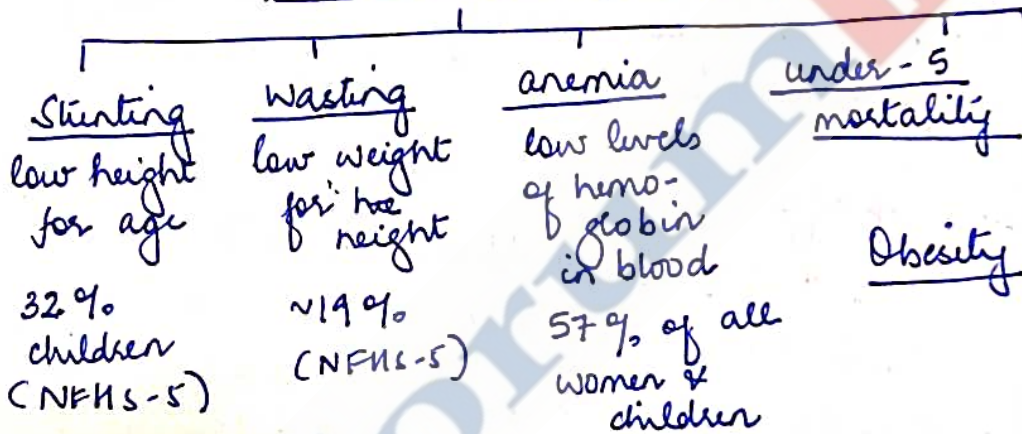 Stunting
low height
for age
32%
children
(NFHS-5)
Wasting
low weight
for
height
~19%
(NFHS-5)
anemia
low levels
of hemo-
globin
in blood
57% of all
women &
children
under-5
mortality
Obesity